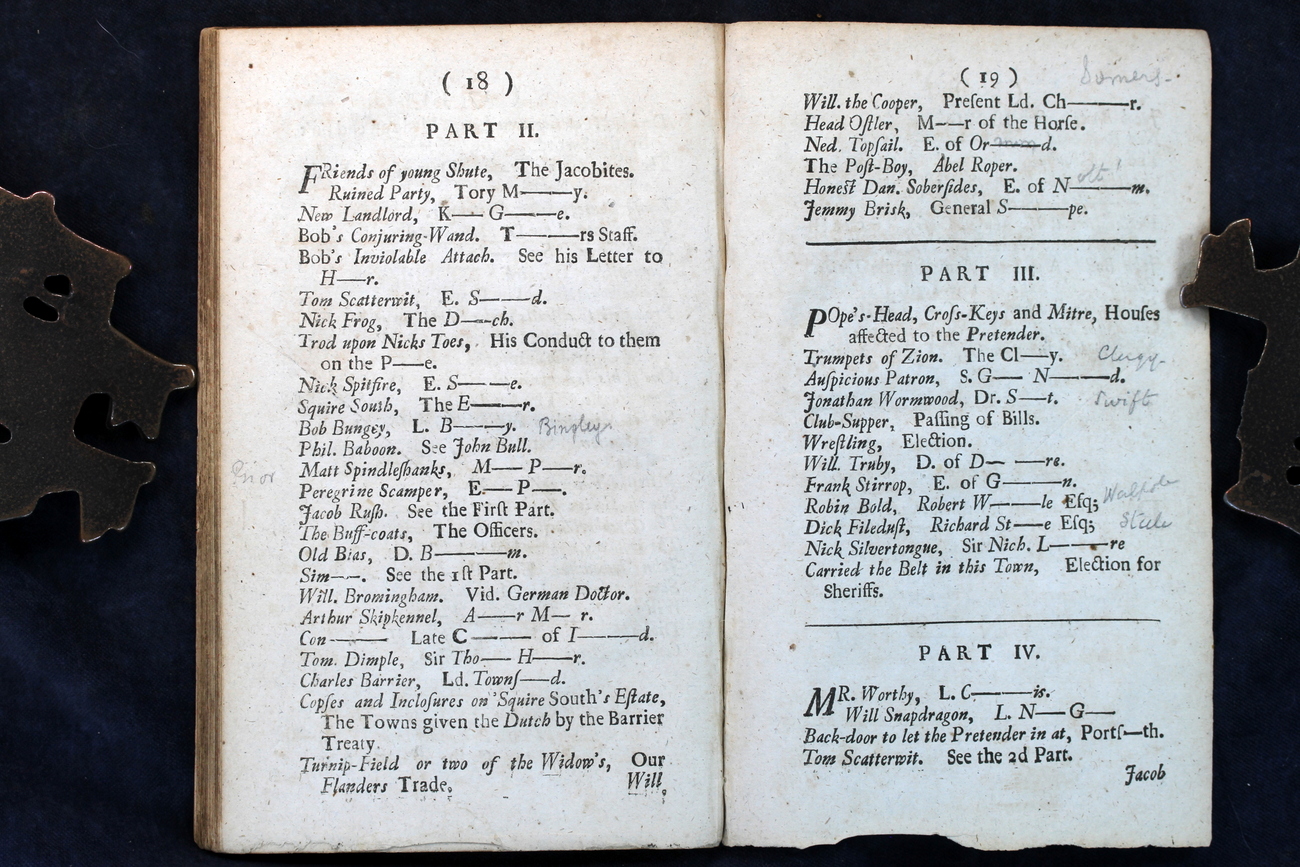 ( 18 )
PART II.
FRiends of young Shute, The Jacobites.
Ruined Party, Tory M———y.
New Landlord, K—— G———e.
Bob's Conjuring-Wand. T———rs Staff.
Bob's Inviolable Attach. See his Letter to
H——r.
Tom Scatterwit, E. S———d.
Nick Frog, The D——ch.
Trod upon Nicks Toes, His Conduct to them
on the P——e.
Nick Spitfire, E. S———e.
Squire South, The E———r.
Bob Bungey, L. B———y. Bingley
Phil. Baboon. See John Bull.
Prior Matt Spindleſhanks, M—— P——r.
Peregrine Scamper, E.—— P——.
Jacob Ruſh. See the Firſt Part.
The Buff-coats, The Officers.
Old Bias, D. B————m.
Sim——. See the 1ſt Part.
Will. Bromingham. Vid. German Doctor.
Arthur Skipkennel, A——r M— r.
Con ——— Late C ——— of I———d.
Tom. Dimple, Sir Tho—— H——r.
Charles Barrier, Ld. Townſ——d.
Copſes and Incloſures on 'Squire South's Eſtate,
The Towns given the Dutch by the Barrier
Treaty.
Turnip-Field or two of the Widow's, Our
Flanders Trade.
Will.
( 19 ) Somers
Will. the Cooper, Preſent Ld. Ch———r.
Head Oſtler, M——r of the Horſe.
Ned. Topſail. E. of Or———d.
The Poſt-Boy, Abel Roper.
Honeſt Dan. Soberſides, E. of N———m.
Jemmy Brisk, General S———pe.
PART III.
POpe's-Head, Croſs-Keys and Mitre, Houſes
affected to the Pretender.
Trumpets of Zion. The Cl——y. Clergy
Auſpicious Patron, S. G—— N———d.
Jonathan Wormwood, Dr. S——t. Swift
Club-Supper, Paſſing of Bills.
Wreſtling, Election.
Will. Truby, D. of D— ——re.
Frank Stirrop, E. of G———n.
Robin Bold, Robert W———le Eſq; Walpole
Dick Fileduſt, Richard St——e Eſq; Steele
Nick Silvertongue, Sir Nich. L———re
Carried the Belt in this Town, Election for
Sheriffs.
PART IV.
MR. Worthy, L. C———is.
Will Snapdragon, L. N—— G——
Back-door to let the Pretender in at, Portſ—th.
Tom Scatterwit. See the 2d Part.
Jacob